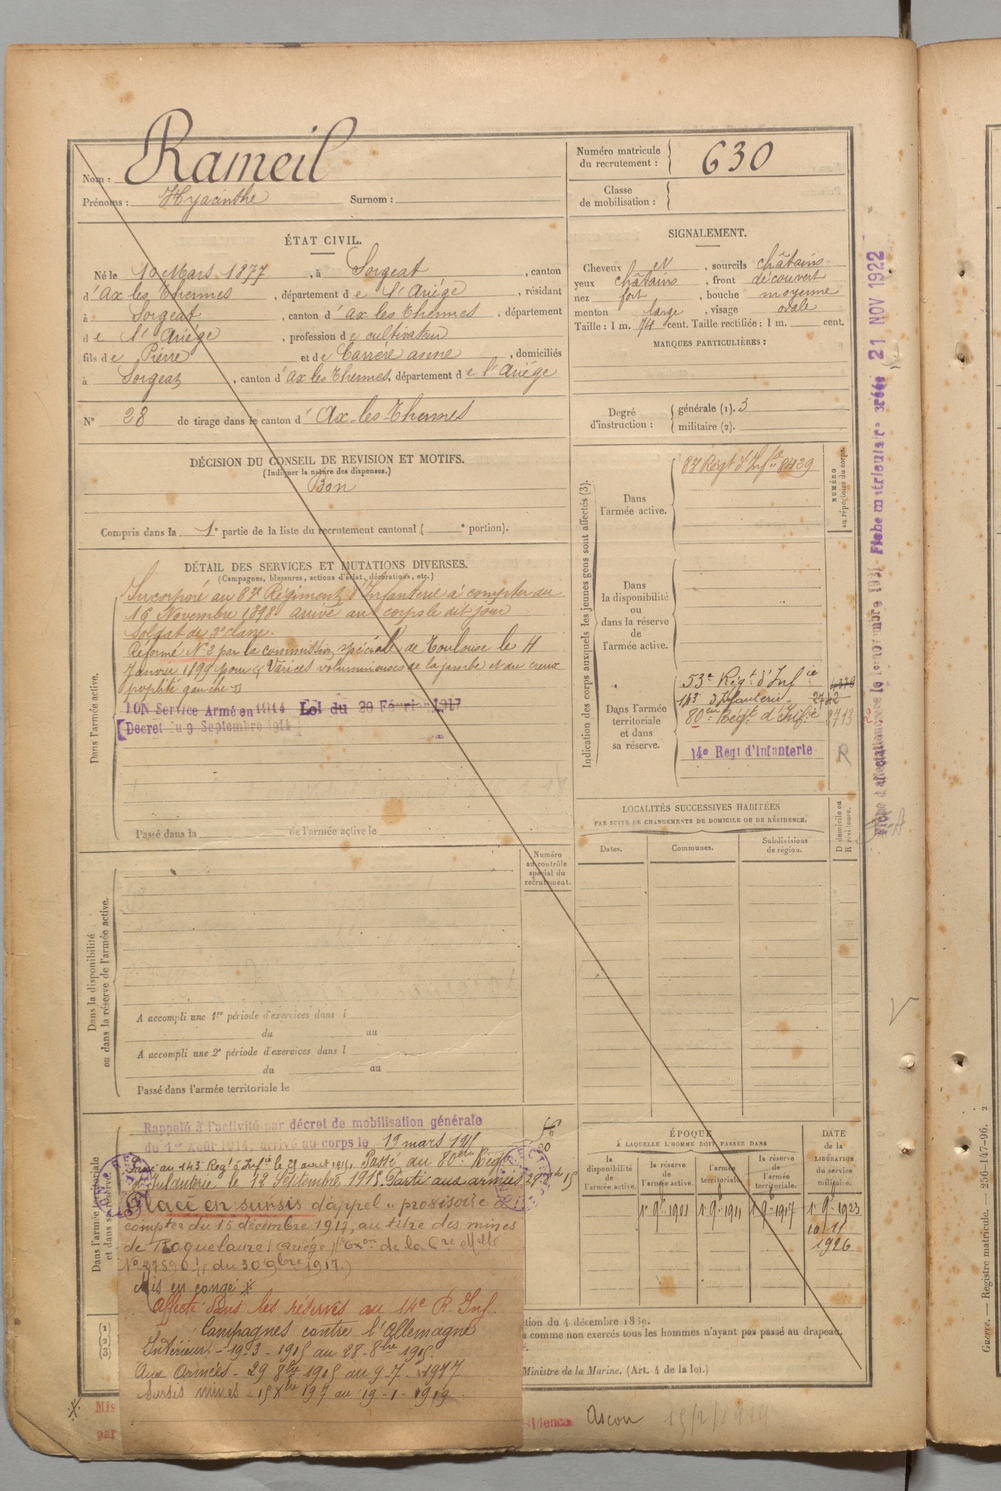 Nom : Rameil
Prénoms : Hyacinthe Surnom :
Numéro matricule
du recrutement : 630
Classe
de mobilisation :
ÉTAT CIVIL.
Né le 10 Mars 1877, à Sorgeat, canton
d'Ax les Thermes, département de l'Ariège, résidant
à Sorgeat, canton d'Ax les Thermes, département
de l'Ariège, profession de cultivateur
fils de Pierre et de Carrere anne, domiciliés
à Sorgeat, canton d'Ax les Thermes, département de l'Ariège
N° 28 de tirage dans le canton d'Ax-les-Thermes
SIGNALEMENT.
Cheveux , sourcils châtains
yeux châtains, front découvert
nez fort, bouche moyenne
menton large, visage ovale
Taille : 1 m. 74 cent. Taille rectifiée : 1 m. cent.
MARQUES PARTICULIÈRES :
Degré
d'instruction :
générale (1). 3
militaire (2).
DÉCISION DU CONSEIL DE REVISION ET MOTIFS.
(Indiquer la nature des dispenses.)
Bon
Compris dans la 1e partie de la liste du recrutement cantonal ( e portion).
DÉTAIL DES SERVICES ET MUTATIONS DIVERSES.
(Campagnes, blessures, actions d'éclat, décorations, etc.)
Dans l'armée active.
Incorporé au 87e Régiment d'Infanterie à compter du
16 Novembre 1898 arrivé au corps le dit jour
Soldat de 2e classe.
Réformé N° 2 par la commission spéciale de Toulouse le 11
Janvier 1899 pour Varices volumineuses de la jambe et du creux
poplité gauche
ION Service Armé en 1914 Loi du 20 Février 1917
Décret du 9 Septembre 1914
Passé dans la de l'armée active le
Indication des corps auxquels les jeunes gens sont affectés (3).
NUMÉRO
au répertoire du corps.
Dans
l'armée active.
87 Regt d'Infie 8429
Dans
la disponibilité
ou
dans la réserve
de l'armée
active.
Dans l'armée
territoriale
et dans
sa réserve.
53e Régt d'Infie
143 d'Infanterie
80ème Régt d'Infie 8713
14e Regt d'Infanterie R
LOCALITÉS SUCCESSIVES HABITÉES
PAR SUITE DE CHANGEMENTS DE DOMICILE OU DE RÉSIDENCE.
Dates. Communes. Subdivisions
de région.
D domicile ou
R résidence.
Numéro
au contrôle
spécial du
recrutement.
Dans la disponibilité
ou dans la réserve de l'armée active.
A accompli une 1re période d'exercices dans l
du au
A accompli une 2e période d'exercices dans l
du au
Passé dans l'armée territoriale le
Dans l'armée territoriale
et dans sa réserve.
Rappelé à l'activité par décret de mobilisation générale
du 1er Août 1914, arrivé au corps le 19 mars 1915
Passé au 143 Regt d'Infie le 21 avril 1915 Passé au 80ème Régt
d'Infanterie le 12 Septembre 1915. Parti aux armées
Placé en sursis d'appel provisoire
compter du 15 décembre 1917, au titre des mines
de Roquelaure (Ariège) (Exon de la Cre Mlle
du 30 9bre 1917.)
Mis en congé
affecté dans les réserves au 14e R. Inf.
Campagnes contre l'Allemagne
Intérieur - 19-3-1915 au 28-8bre 1915
Aux Armées - 29 8bre 1915 au 9-7-1917
Sursis mines - 15 Xbre 197 au 19-1-1919
ÉPOQUE
À LAQUELLE L'HOMME DOIT PASSER DANS
la
disponibilité
de l'armée
active.
la réserve
de
l'armée active.
l'armée
territoriale.
la réserve
de
l'armée
territoriale.
DATE
de la
LIBÉRATION
du service
militaire.
1 9e 1901 1 9e 1911 1 9e 1917 1 9e 1923
10 11
1926
(1)
(2)
(3)
tion du 4 décembre 1889.
comme non exercés tous les hommes n'ayant pas passé au drapeau.
Ministre de la Marine. (Art. 4 de la loi.)
Mis
par
sidence Ascou 15/2/1919
Fiche matriculaire créée 21 NOV 1922
Guerre. — Registre matricule. — 256-147-96. 2